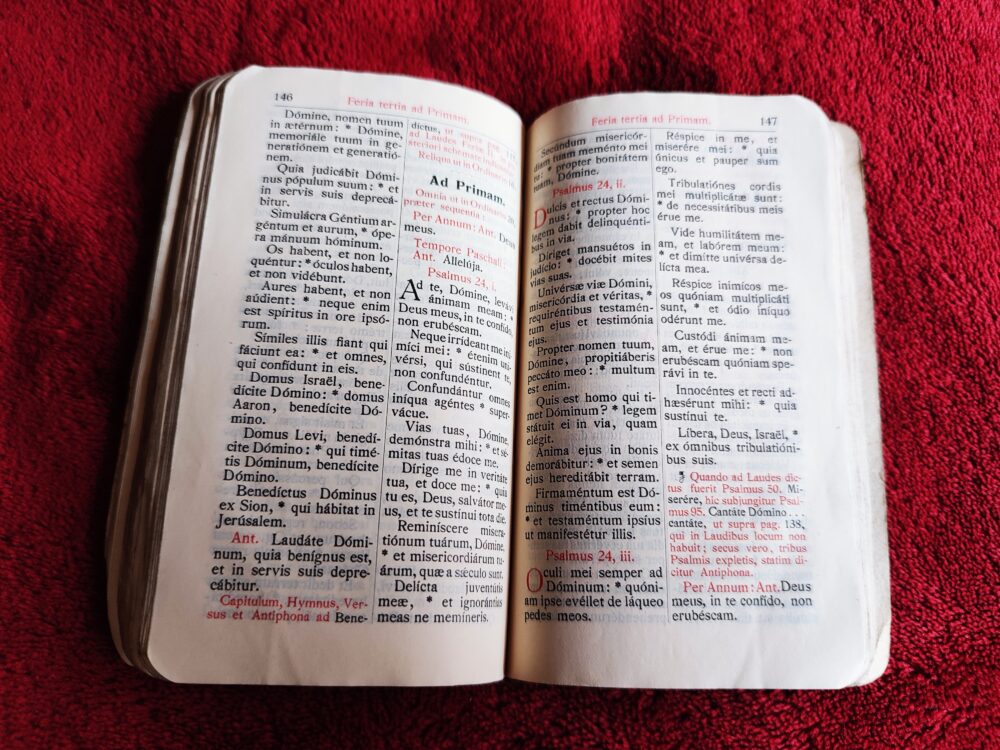 146
Feria tertia ad Primam.
Dómine, nomen tuum
in ætérnum: * Dómine,
memoriále tuum in ge-
neratiónem et generatió-
nem.
Quia judicábit Dómi-
nus pópulum suum: * et
in servis suis deprecá-
bitur.
Simulácra Géntium ar-
géntum et aurum, * ópe-
ra mánuum hóminum.
Os habent, et non lo-
quéntur: * óculos habent,
et non vidébunt.
Aures habent, et non
aúdient: * neque enim
est spíritus in ore ipsó-
rum.
Símiles illis fiant qui
fáciunt ea: * et omnes,
qui confídunt in eis.
Domus Israël, bene-
dícite Dómino: * domus
Aaron, benedícite Dó-
mino.
Domus Levi, benedí-
cite Dómino: * qui timé-
tis Dóminum, benedícite
Dómino.
Benedíctus Dóminus
ex Sion, * qui hábitat in
Jerúsalem.
Ant. Laudáte Dómi-
num, quia benígnus est,
et in servis suis depre-
cábitur.
Capitulum, Hymnus, Ver-
sus et Antiphona ad Bene-
dictus, ut supra pag.
ad Laudes Feriæ
steriori schemate
Reliqua ut in Ordinario
Ad Primam.
Omnia ut in Ordinario
præter sequentia:
Per Annum: Ant. Deus
meus.
Tempore Paschali:
Ant. Allelúja.
Psalmus 24, i.
Ad te, Dómine, levávi
ánimam meam: *
Deus meus, in te confído,
non erubéscam.
Neque irrídeant me ini-
míci mei: * étenim uni-
vérsi, qui sústinent te,
non confundéntur.
Confundántur omnes
iníqua agéntes * super-
vácue.
Vias tuas, Dómine,
demónstra mihi: * et sé-
mitas tuas édoce me.
Dírige me in veritáte
tua, et doce me: * quia
tu es, Deus, salvátor me-
us, et te sustínui tota die.
Reminíscere misera-
tiónum tuárum, Dómine,
* et misericordiárum tu-
árum, quæ a sǽculo sunt.
Delícta juventútis
meæ, * et ignorántias
meas ne memíneris.
Feria tertia ad Primam.
147
Secúndum misericór-
diam tuam meménto mei
tu: * propter bonitátem
tuam, Dómine.
Psalmus 24, ii.
Dulcis et rectus Dómi-
nus: * propter hoc
legem dabit delinquénti-
bus in via.
Díriget mansuétos in
judício: * docébit mites
vias suas.
Univérsæ viæ Dómini,
misericórdia et véritas, *
requiréntibus testamén-
tum ejus et testimónia
ejus.
Propter nomen tuum,
Dómine, propitiáberis
peccáto meo: * multum
est enim.
Quis est homo qui ti-
met Dóminum? * legem
státuit ei in via, quam
elégit.
Anima ejus in bonis
demorábitur: * et semen
ejus hereditábit terram.
Firmaméntum est Dó-
minus timéntibus eum:
* et testaméntum ipsíus
ut manifestétur illis.
Psalmus 24, iii.
Oculi mei semper ad
Dóminum: * quóni-
am ipse evéllet de láqueo
pedes meos.
Réspice in me, et
miserére mei: * quia
únicus et pauper sum
ego.
Tribulatiónes cordis
mei multiplicátæ sunt:
* de necessitátibus meis
érue me.
Vide humilitátem me-
am, et labórem meum:
* et dimítte univérsa de-
lícta mea.
Réspice inimícos me-
os quóniam multiplicáti
sunt, * et ódio iníquo
odérunt me.
Custódi ánimam me-
am, et érue me: * non
erubéscam quóniam spe-
rávi in te.
Innocéntes et recti ad-
hæsérunt mihi: * quia
sustínui te.
Líbera, Deus, Israël, *
ex ómnibus tribulatióni-
bus suis.
Quando ad Laudes dic-
tus fuerit Psalmus 50. Mi-
serére, hic subjungitur Psal-
mus 95. Cantáte Dómino...
cantáte, ut supra pag. 138,
qui in Laudibus locum non
habuit; secus vero, tribus
Psalmis expletis, statim di-
citur Antiphona.
Per Annum: Ant. Deus
meus, in te confído, non
erubéscam.